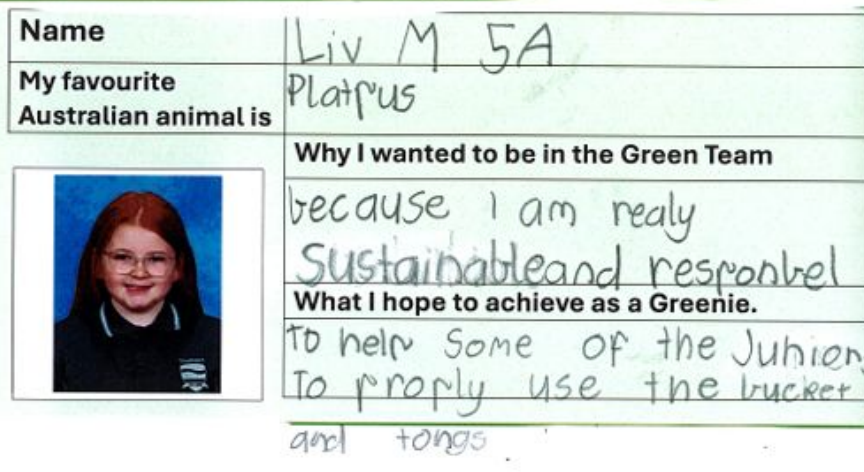 Name
Liv M 5A
My favourite
Australian animal is
Platpus
Why I wanted to be in the Green Team
because I am realy
Sustainable and responbel
What I hope to achieve as a Greenie.
To help Some of the Junior
To proply use the bucket
and tongs